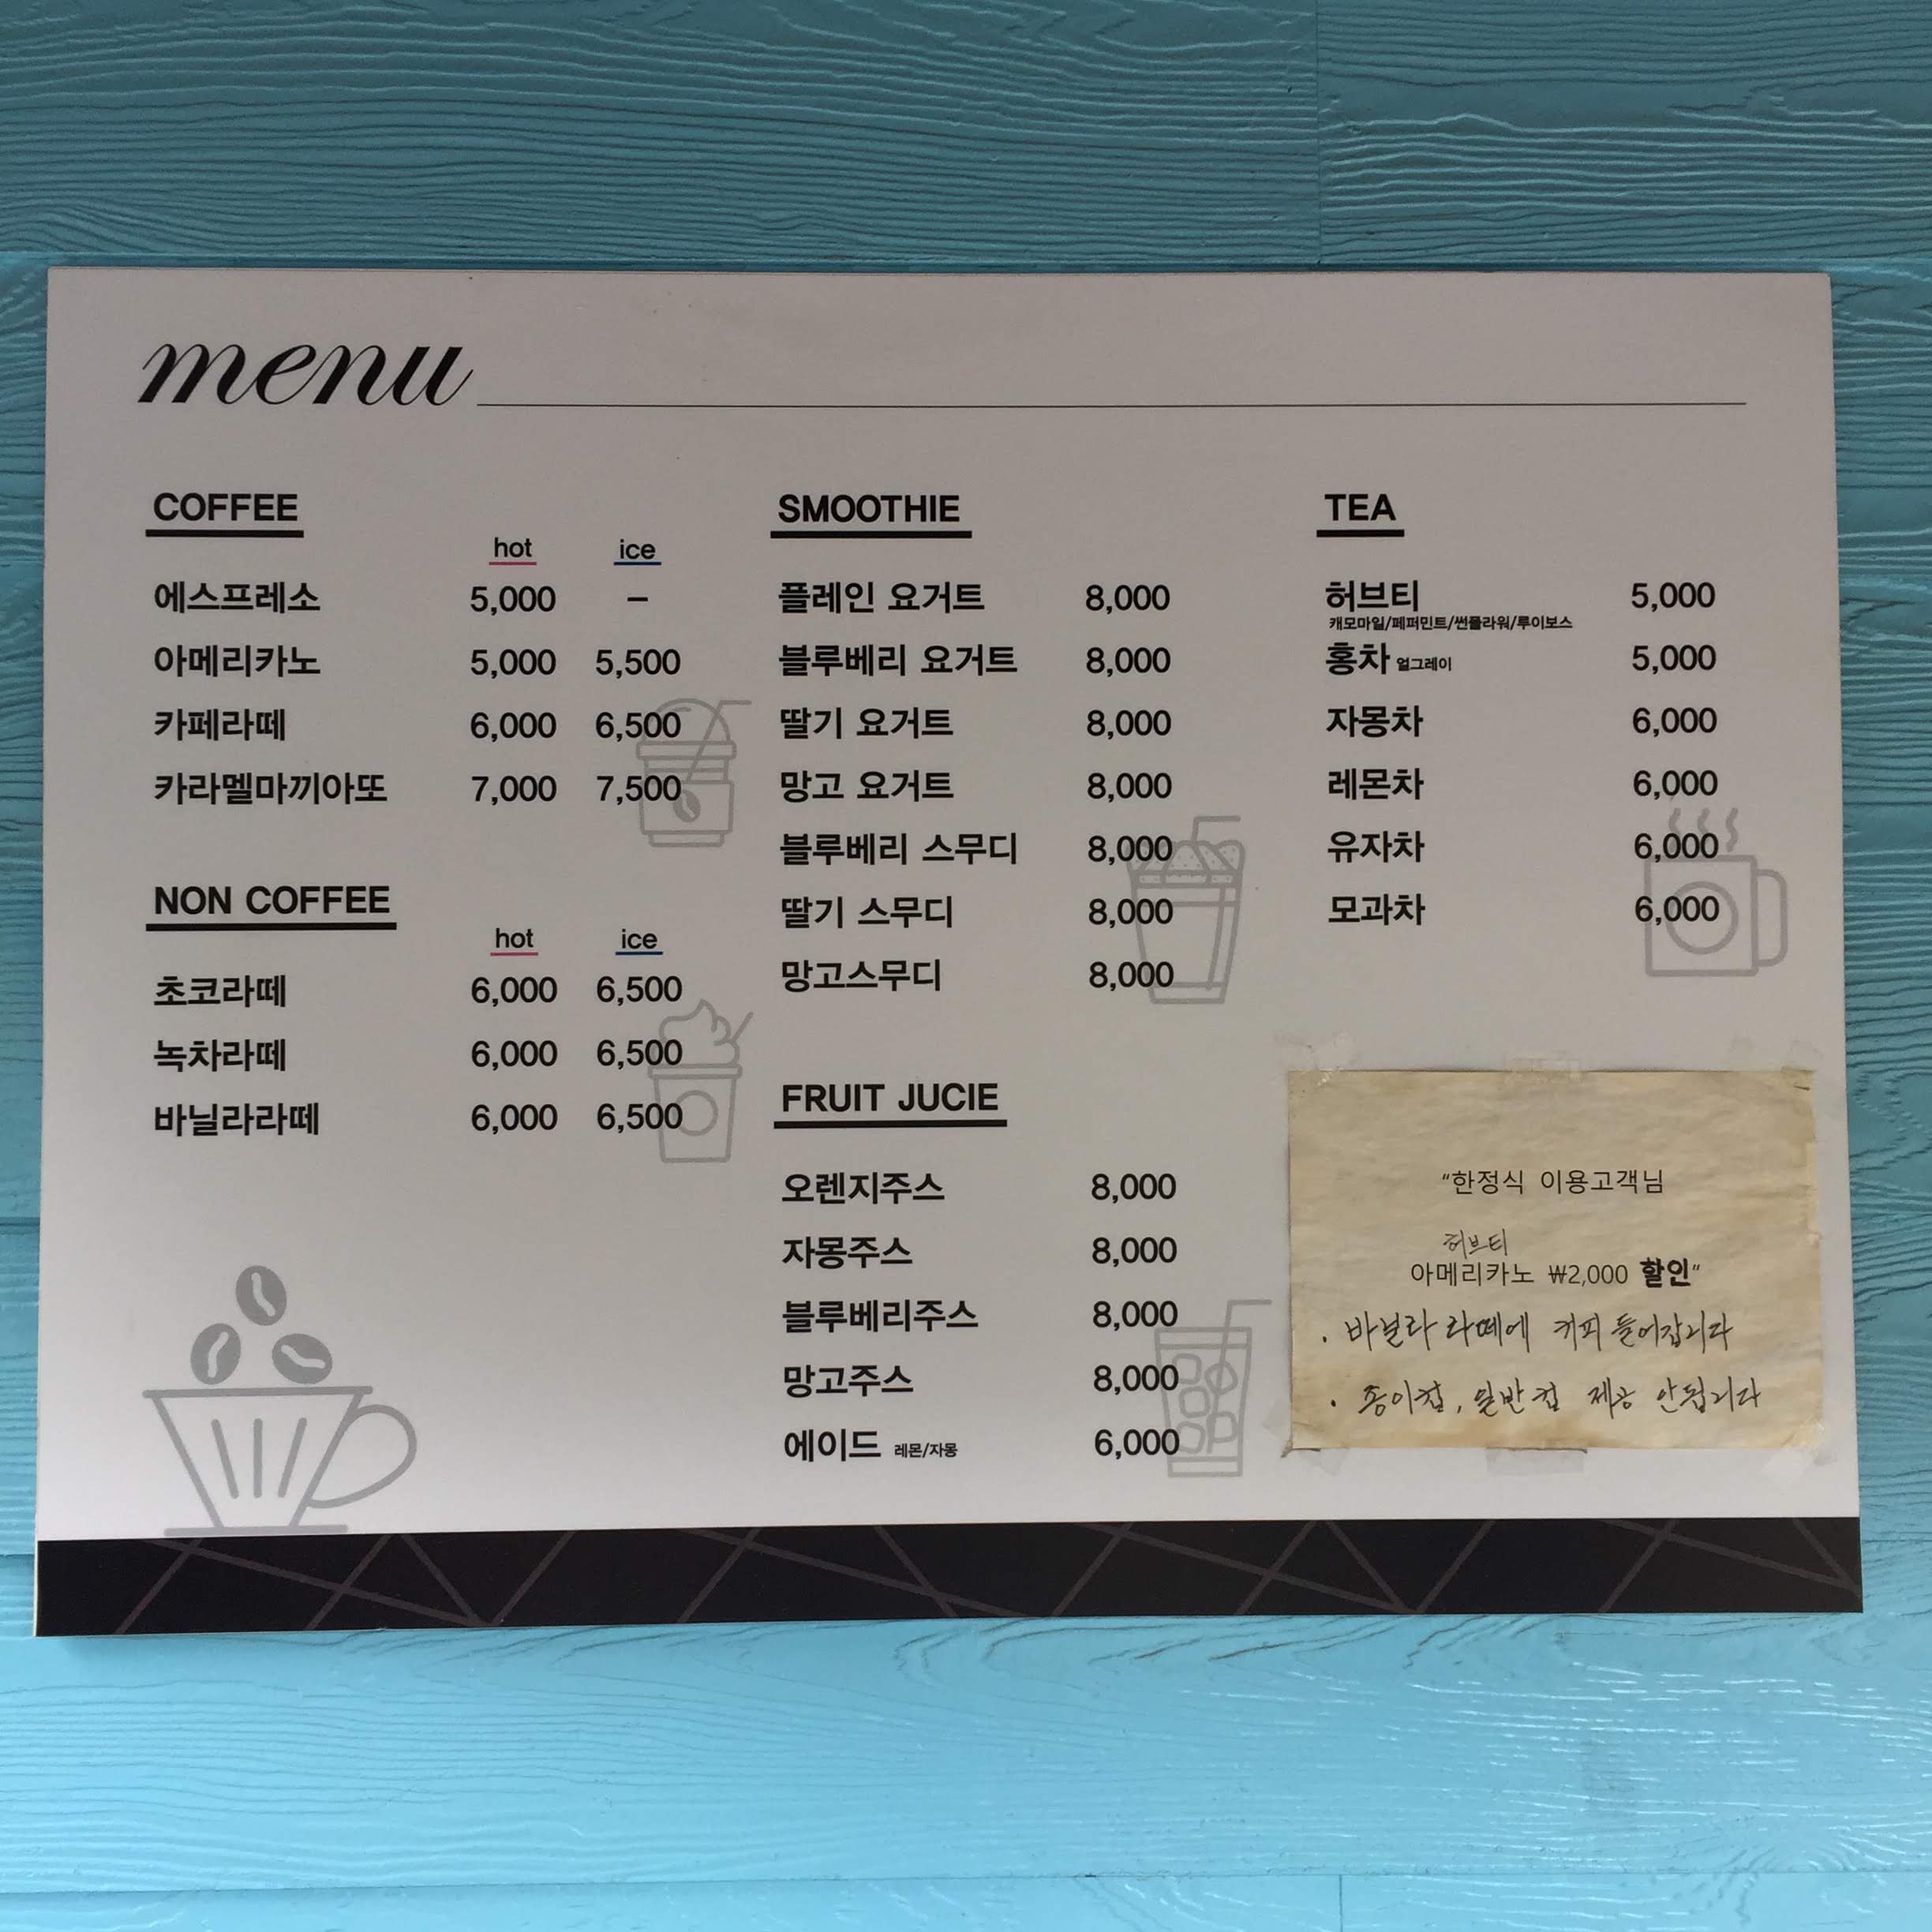 menu
COFFEE
hot ice
에스프레소 5,000 –
아메리카노 5,000 5,500
카페라떼 6,000 6,500
카라멜마끼아또 7,000 7,500
NON COFFEE
hot ice
초코라떼 6,000 6,500
녹차라떼 6,000 6,500
바닐라라떼 6,000 6,500
SMOOTHIE
플레인 요거트 8,000
블루베리 요거트 8,000
딸기 요거트 8,000
망고 요거트 8,000
블루베리 스무디 8,000
딸기 스무디 8,000
망고스무디 8,000
FRUIT JUCIE
오렌지주스 8,000
자몽주스 8,000
블루베리주스 8,000
망고주스 8,000
에이드 레몬/자몽 6,000
TEA
허브티 5,000
캐모마일/페퍼민트/썬플라워/루이보스
홍차 얼그레이 5,000
자몽차 6,000
레몬차 6,000
유자차 6,000
모과차 6,000
“한정식 이용고객님
허브티
아메리카노 ₩2,000 할인“
· 바닐라 라떼에 커피 들어갑니다
· 종이컵, 일반컵 제공 안됩니다